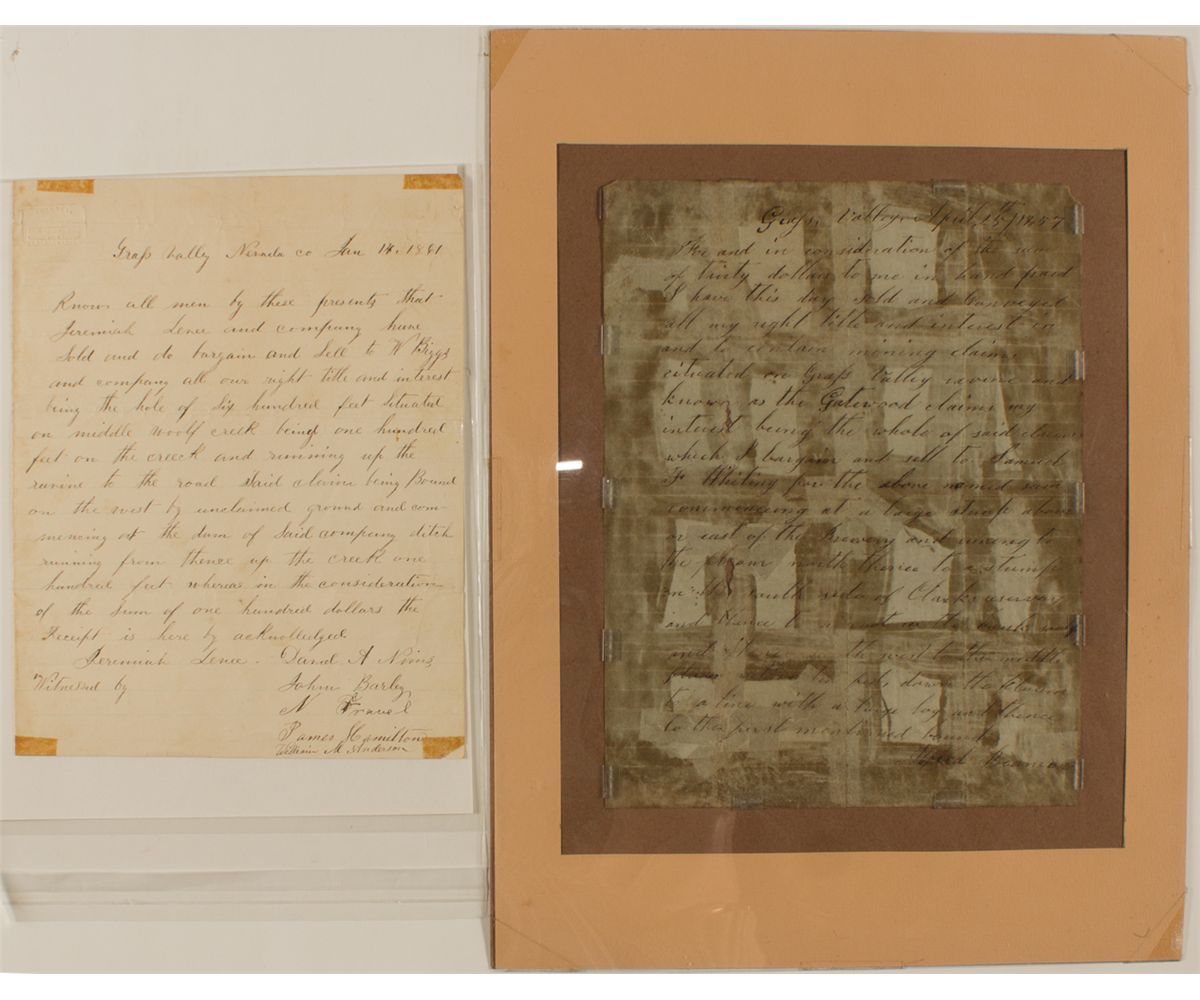 Grass Valley Nevada co Jan 14. 1861
Know all men by these presents that
Jeremiah Lenee and company have
Sold and do bargain and Sell to W Biggs
and company all our right title and interest
being the hole of Six hundred feet Situated
on middle woolf creek being one hundred
feet on the creeck and running up the
ravine to the road Said claim being Bound
on the west by unclaimed ground and com-
mencing at the dam of Said company ditch
running from thence up the creek one
hundred feet whereas in the consideration
of the Sum of one hundred dollars the
Receipt is here by acknolledged
Jeremiah Lenee . David A
Witnessed by
John Barley
N Fravel
James Hamilton
William M Anderson
Grass Valley April 15th 1857
For and in consideration of the sum
of thirty dollars to me in hand paid
I have this day Sold and Conveyed
all my right title and interest in
and to certain mining claims
cituated on Grass Valley ravine and
known as the Gatewood claims my
interest being the whole of said claims
which I bargain and sell to Samuel
F Whiting for the above named sum
commencing at a large stump above
or east of the Brewery and runing to
the north thence to a stump
on the south side of Clarks reservoy
and thence to a in the
and the west to the middle
down the
to a line with a large log and thence
to the first mentioned